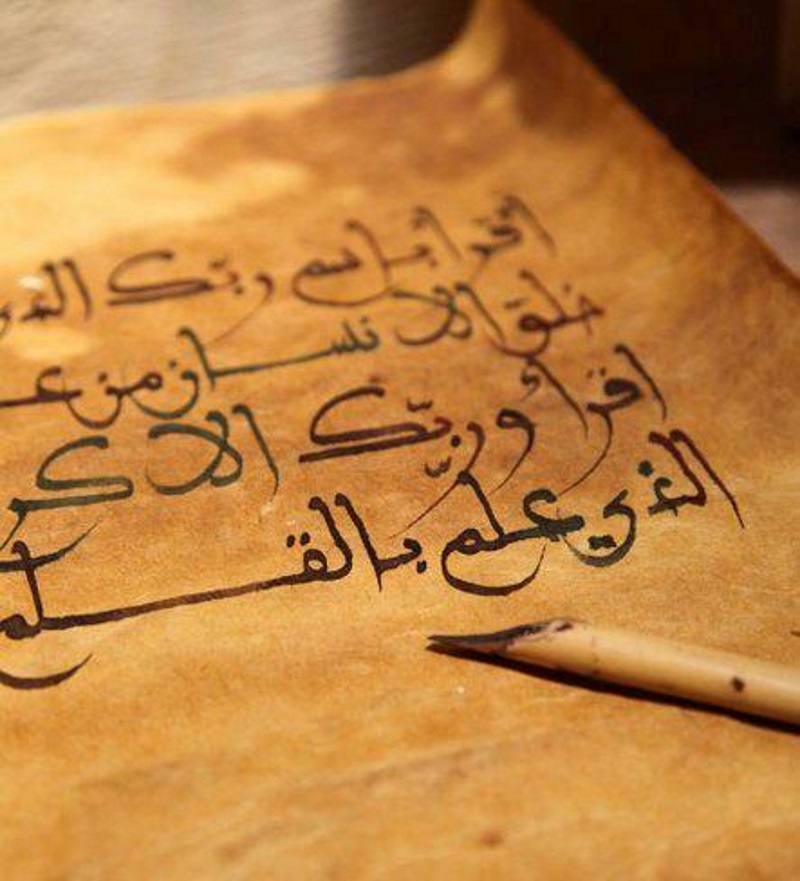 اقرأ باسم ربّك الذ
خلق الانسان من عـ
اقرأ وربّك الاكر
الذي علّم بالقلم